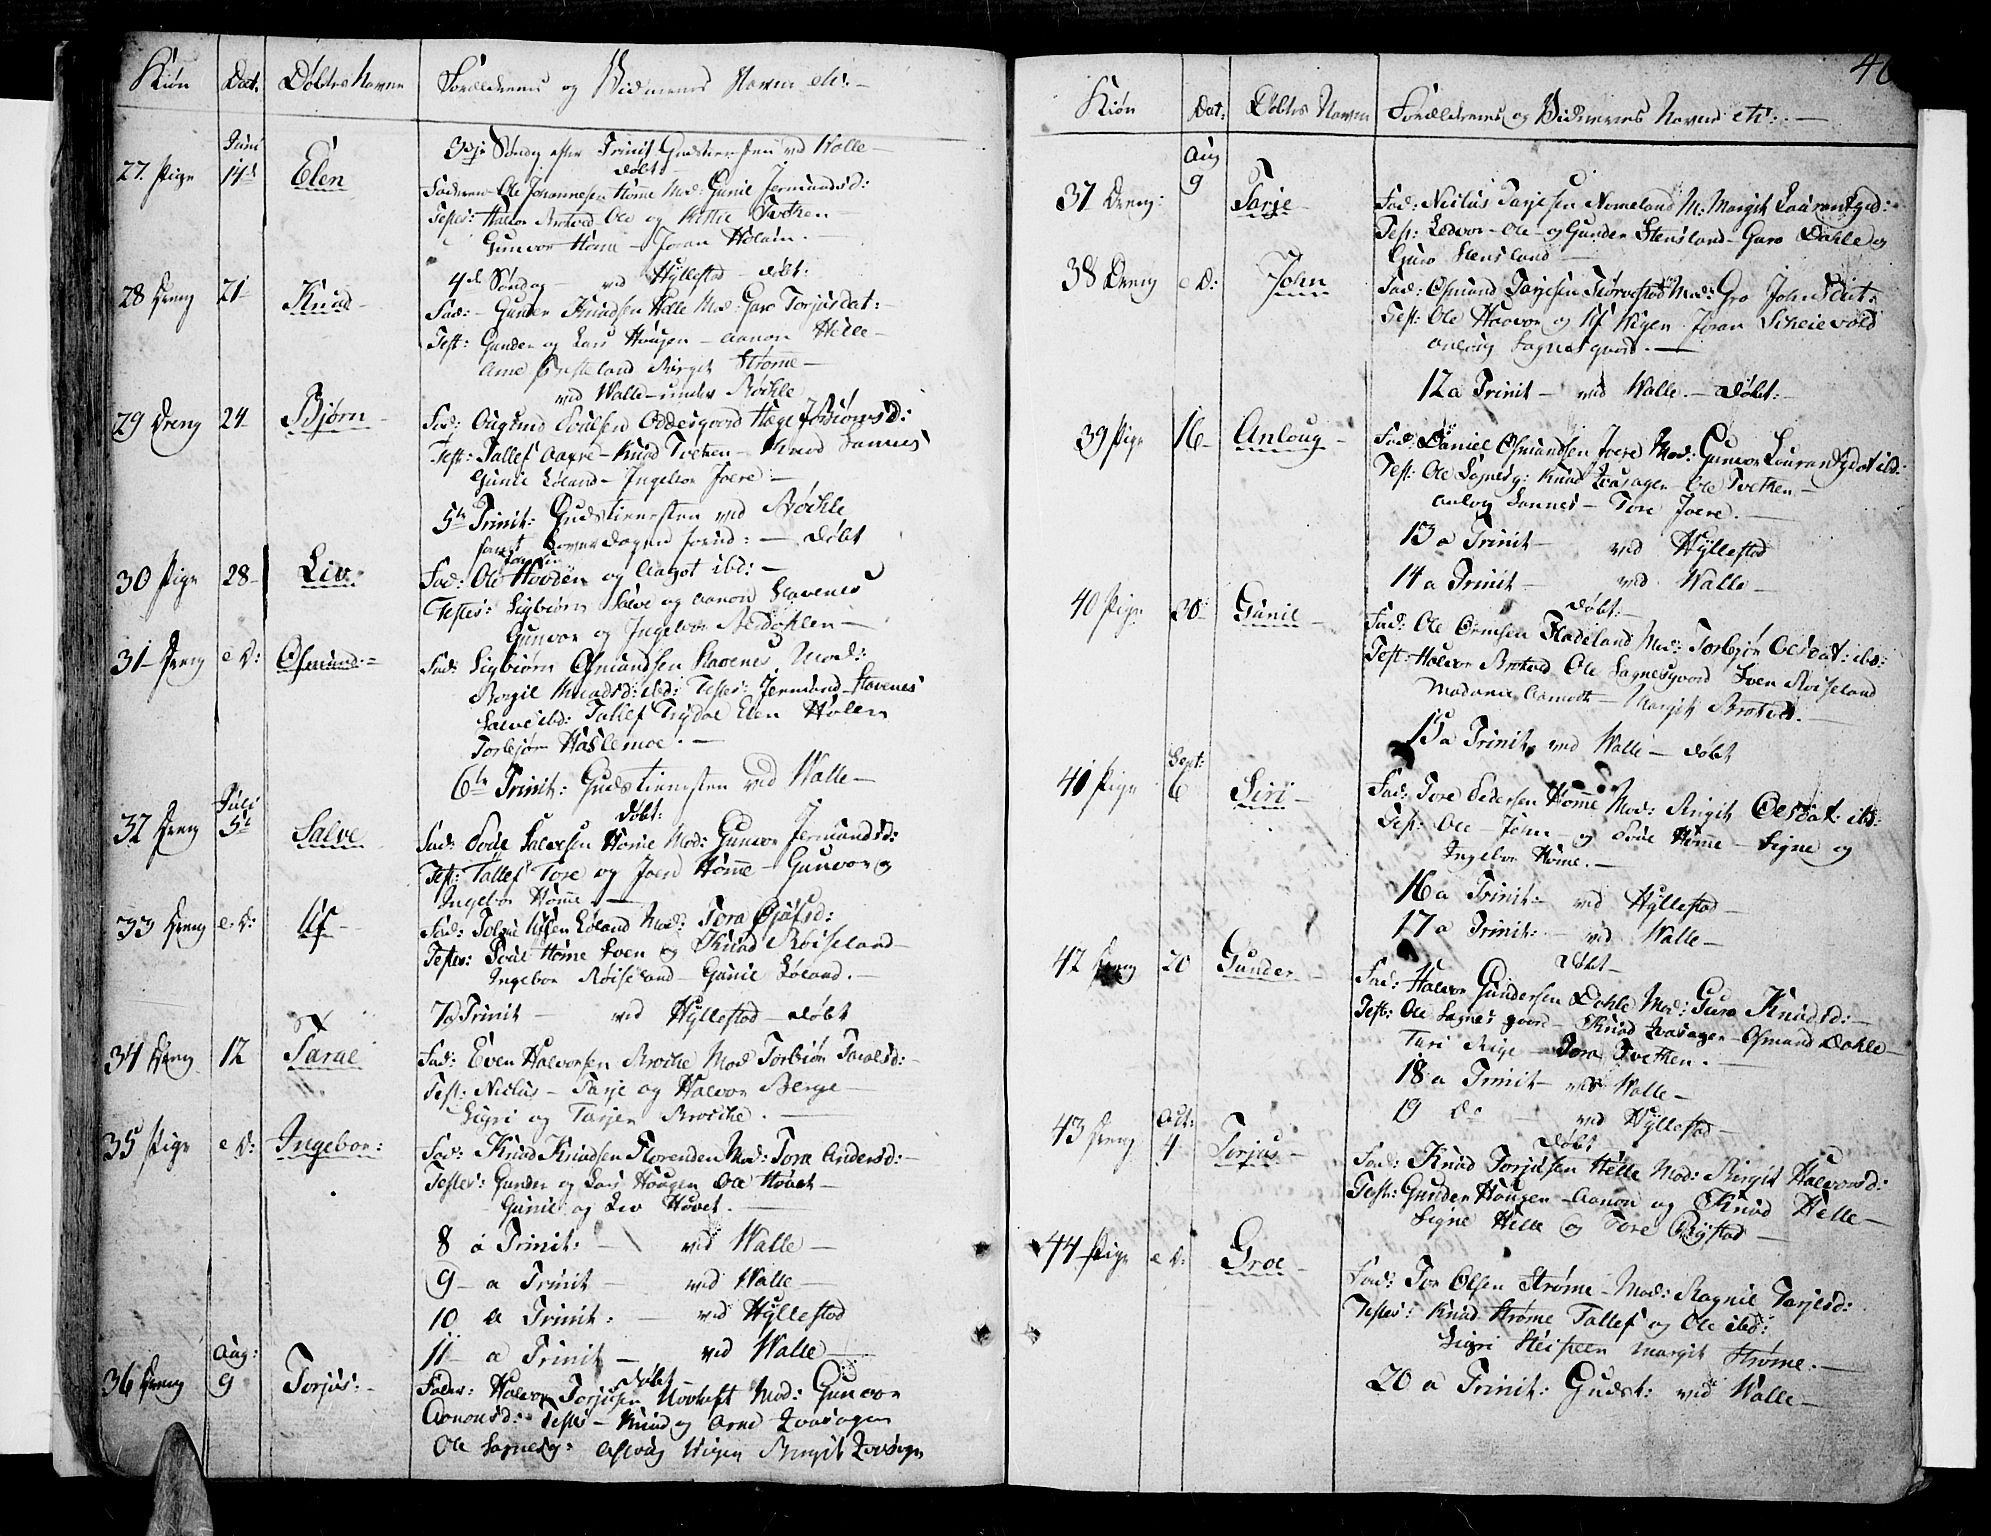 Kiøn Dat. Døbtes Navne Forældrenes og Vidnernes Navne etc: —
Juni
3die Søndag efter Trinit: Gudstienesten ved Walle —
døbt —
27. Pige 14de Elen Faderen Ole Johannesen Homme Mod: Gunil Jermundsd:
Testes: Halvor Brotved Ole og Kittil Tveten —
Gunvor Homme — Joran Holen. —
4de Søndag — ved Hyllestad — døbt:
28 Dreng 21 Knud — Fad: — Gunder Knudsen Helle Mod: Guro Torjusdat: —
Test: Gunder og Lars Hougen — Aanon Helle —
Arne Birgit Strøme —
ved Walle — under Bøikle
29 Dreng 24 Bjørn — Fad: Augund Oddesgaard Hæge Biørnsd:
Test: Tallef Aagre — Knud Tveten — Knud Sannes
Gunil Løland — Ingebor Joere —
5te Trinit: Gudstienesten ved Bøikle
døbt
30 Pige 28 — Liv. Fad: Ole Hovden og Aagot ibd: —
Testes: Sigbiørn Salve og Aanon Flavenes
Gunvor og Ingebor —
31 Dreng e D: Osmund: = Fad: Sigbiørn Osmundsen Flavenes Mod:
Borgil Knudsd: ibd: Testes: Jermund Flavenes
Salve ibd: Tallef Trydal Elen Holen
Torbjør Haslemoe. —
6te Trinit: Gudstienesten ved Walle —
Juli døbt:
32 Dreng 5te Salve Fad: Salvesen Homme Mod: Gunvor Jermundsd:
Test: Tallef Tore og Joen Homme — Gunvor og
Ingebor Homme. —
33 Dreng e. D: Ulf — Fad: Løland Mod: Tora
Testes: Homme Sven og Knud Røiseland —
Ingebor Røiseland — Gunil Løland. —
7 a Trinit — ved Hyllestad — døbt
34 Dreng 12 Taral Fad: Even Halvorsen Broike Mod Torbiør Taralsd: —
Test: Niclus — Tarje og Halvor Berge —
Sigri og Tarjer Broike. —
35 Pige e D: Ingebor: Fad: Knud Knudsen Florenden Mod: Tora Andersd: —
Testes: Gunder og Lars Hougen Ole Hovet —
Gunil og Liv Hovet. —
8 a Trinit: — ved Walle —
9 — a Trinit — ved Walle —
10 a Trinit: — ved Hyllestad
11 — a Trinit — ved Walle —
Aug: døbt —
36 Dreng 9 Torjus: — Fader: Halvor Torjusen Mod: Gunvor
Aanonsd: Testes — Knud og Arne
Ole Sagnesg: Aslaug Birgit
46
Kiøn Dat: Døbtes Navn Forældrenes og Vidnernes Navne etc: —
Aug
37 Dreng: 9 Tarje — Fad: Niclus Tarjesen Nomeland M: Margit
Test: Ole — og Gunder Stensland — Guro Dahle og
Guro Stensland —
38 Dreng e D: John Fad: Osmund Tarjesen Mod: Gro Johnsdat:
Test: Ole Haavor og Ulf Joran
Anlaug Sagnesgaard. —
12 a Trinit — ved Walle. — døbt: —
39 Pige 16 — Anloug — Fad: Daniel Osmundsen Joere Mod: Gunvor ibd:
Test: Ole Sagnesg: Knud Ole Tveten —
Anlaug Sannes — Tore Joere. —
13 a Trinit — ved Hyllestad
14 a Trinit — ved Walle —
døbt: —
40 Pige 30 Gunil — Fad: Ole Ormsen Fladeland Mod: Torbjør Olesdat: ibd:
Test: Halvor Brotved Ole Sagnesgaard Sven Røiseland
Madame — Margit Brotved. —
15 a Trinit, ved Walle — døbt
Sept:
41 Pige 6 Siri — Fad: Tore Pedersen Homme Mod: Birgit Olesdat: ibd:
Test: Ole — John — og Homme — Signe og
Ingebor Homme. —
16 a Trinit: — ved Hyllestad —
17 a Trinit: — ved Walle —
døbt —
42 Dreng 20 Gunder Fad: Halvor Gundersen Dahle Mod: Guro Knudsd: —
Test: Ole Sagnesgaard — Knud Osmund Dahle —
Tari Rige — Tora Tveten. —
18 a Trinit — ved Walle —
19 do — ved Hyllestad —
Oct: døbt
43 Dreng 4 Torjus — Fad: Knud Torjusen Helle Mod: Birgit Halvorsd:
Test: Gunder Hougen — Aanon og Knud Helle —
Signe Helle og Tore Rystad —
44 Pige e D: Groe — Fad: Tor Olsen Strøme — Mod: Ragnil Tarjesd:
Testes: Knud Strøme Tallef og Ole ibd:
Sigri Margit Strøme. —
20 a Trinit: Gudst: ved Walle —